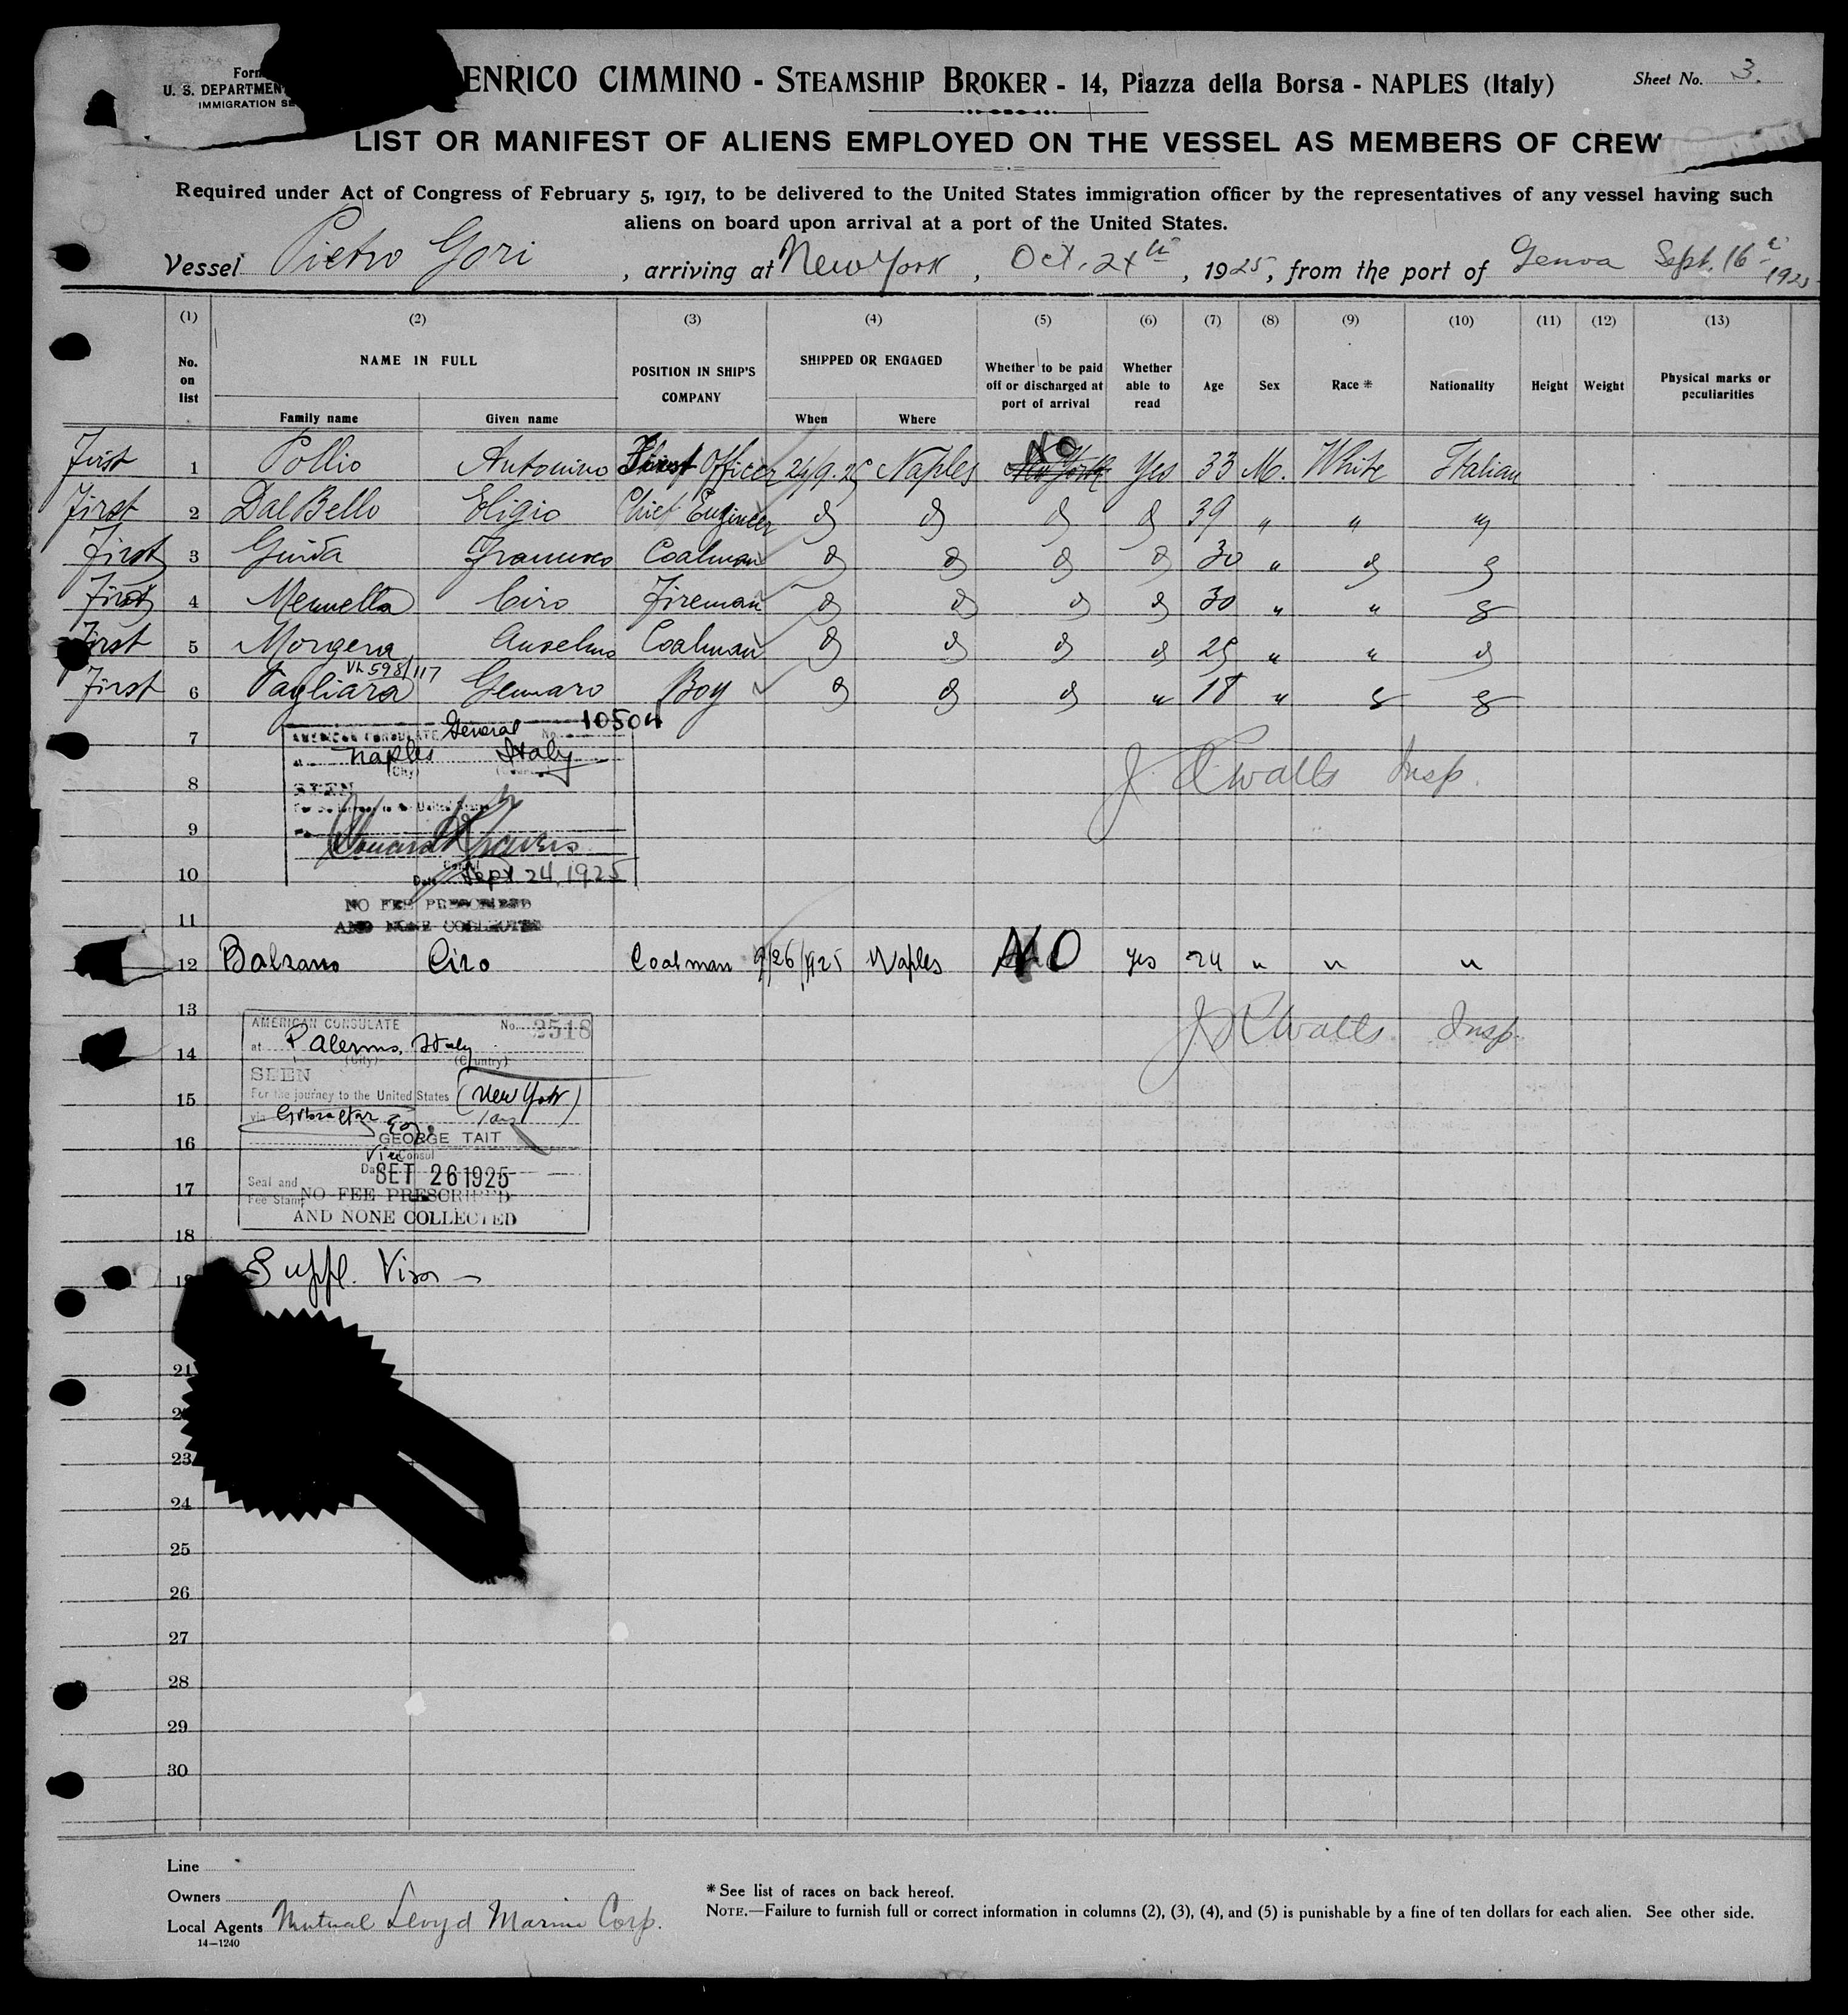 Form
U. S. DEPARTMENT
IMMIGRATION SE
ENRICO CIMMINO - STEAMSHIP BROKER - 14, Piazza della Borsa - NAPLES (Italy)
Sheet No. 3.
LIST OR MANIFEST OF ALIENS EMPLOYED ON THE VESSEL AS MEMBERS OF CREW
Required under Act of Congress of February 5, 1917, to be delivered to the United States immigration officer by the representatives of any vessel having such
aliens on board upon arrival at a port of the United States.
Vessel Pietro Gori, arriving at New York, Oct. 24th, 1925, from the port of Genoa Sept. 16th 1925
(1) (2) (3) (4) (5) (6) (7) (8) (9) (10) (11) (12) (13)
No. on list NAME IN FULL POSITION IN SHIP'S COMPANY SHIPPED OR ENGAGED Whether to be paid off or discharged at port of arrival Whether able to read Age Sex Race * Nationality Height Weight Physical marks or peculiarities
Family name Given name When Where
First 1 Pollio Antonino First Officer 24/9.25 Naples NO New York Yes 33 M. White Italian
First 2 Dal Bello Eligio Chief Engineer 39 " " "
First 3 Guida Francesco Coalman 30 "
First 4 Mennella Ciro Fireman 30 " "
First 5 Morgera Anselmo Coalman 25 " "
VL 598/117
First 6 Pagliara Gennaro Boy " 18 "
7
AMERICAN CONSULATE General No. 10504
at Naples Italy
(City) (Country)
8
SEEN
For the journey to the United States
J. Watts Insp.
9
10
Consul
Date Sept 24, 1925
NO FEE PRESCRIBED
11
AND NONE COLLECTED
12 Balzano Ciro Coalman 9/26/1925 Naples NO yes 24 " " "
13
AMERICAN CONSULATE No. 2518
at Palermo, Italy
(City) (Country)
J. Watts Insp.
14
SEEN
For the journey to the United States (New York)
15
via Gibraltar
GEORGE TAIT
16
Vice Consul
Date SET 26 1925
Seal and
17
Fee Stamp NO FEE PRESCRIBED
AND NONE COLLECTED
18
Suppl. Visa
21
23
24
25
26
27
28
29
30
Line
Owners
Local Agents Mutual Lloyd Marine Corp.
14—1240
* See list of races on back hereof.
NOTE.—Failure to furnish full or correct information in columns (2), (3), (4), and (5) is punishable by a fine of ten dollars for each alien. See other side.